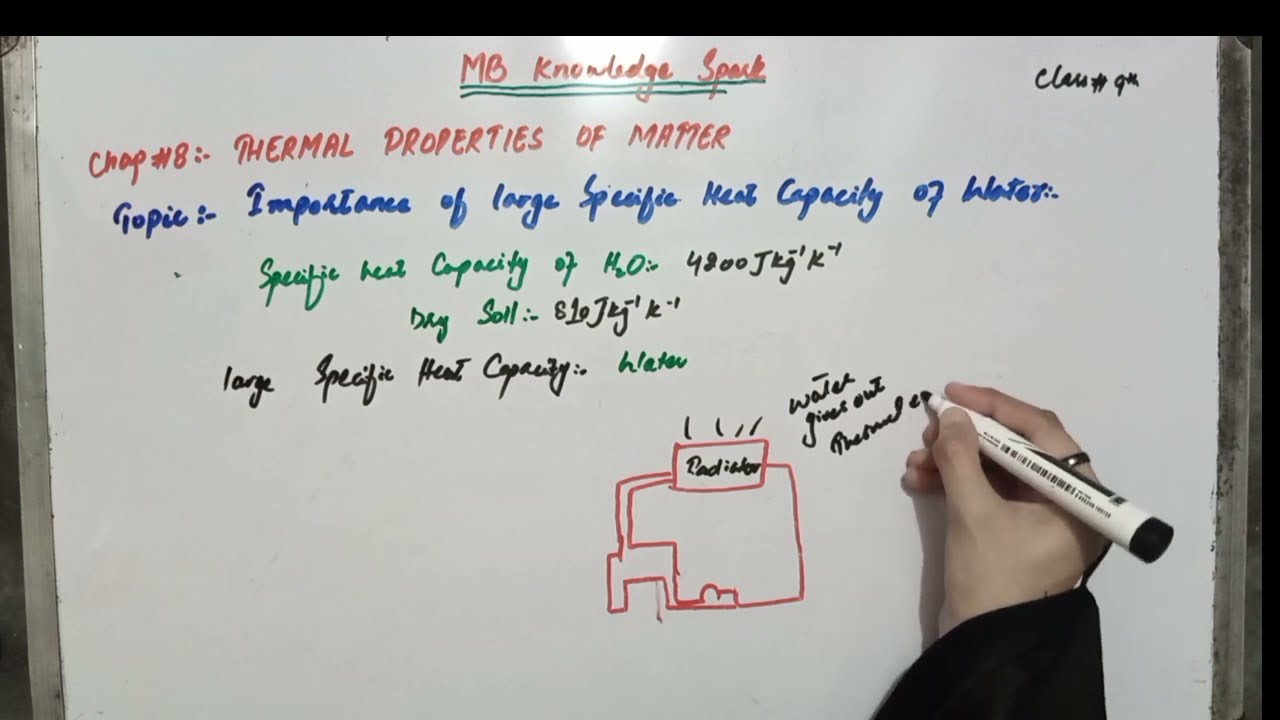 MB Knowledge Spark
Class# 9th
Chap#8:- THERMAL PROPERTIES OF MATTER
Topic:- Importance of large Specific Heat Capacity of Water:-
Specific heat Capacity of H₂O:- 4200 J kg⁻¹ K⁻¹
Dry Soil:- 810 J kg⁻¹ K⁻¹
large Specific Heat Capacity:- Water
Water
gives out
Thermal
Radiator